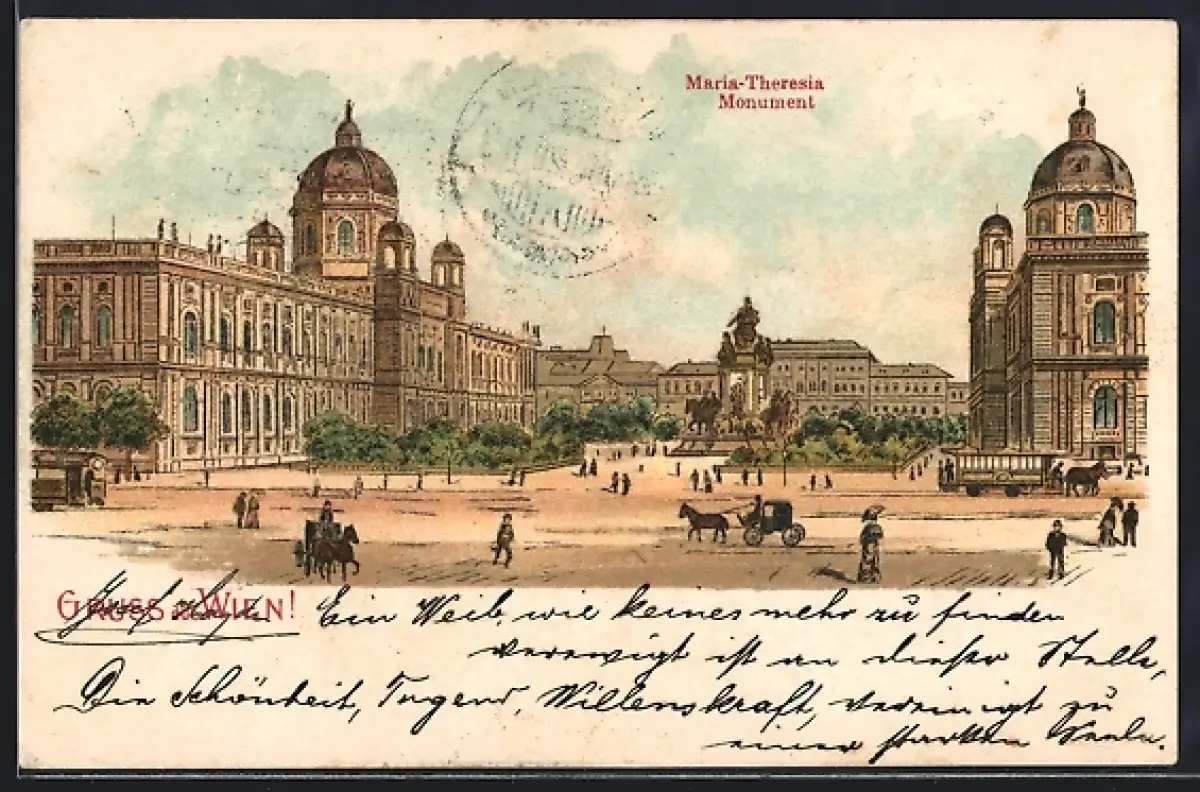 Maria-Theresia
Monument
GRUSS a. WIEN!
Ein Weib, wie keines mehr zu finden
verewigt ist an dieser Stelle,
Die Schönheit, Tugend, Willenskraft, vereinigt zu
einer starken Seele.